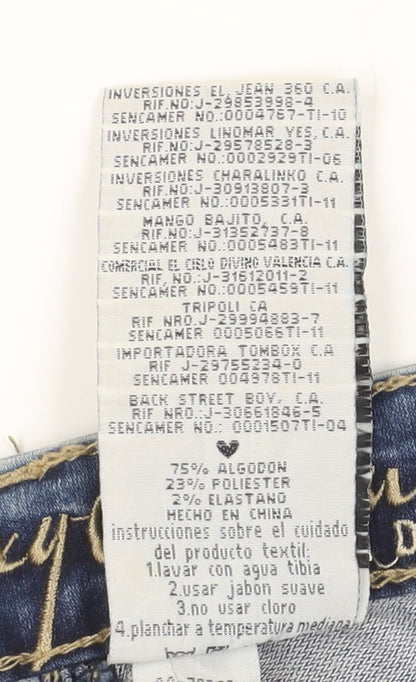 INVERSIONES EL JEAN 360 C.A.
RIF.NO:J-29853998-4
SENCAMER NO.:0004767-TI-10
INVERSIONES LINOMAR YES,C.A.
RIF.NO:J-29578528-3
SENCAMER NO.:0002929TI-06
INVERSIONES CHARALINKO C.A.
RIF.NO:J-30913807-3
SENCAMER NO.:0005331TI-11
MANGO BAJITO, C.A.
RIF.NO:J-31352737-8
SENCAMER NO.:0005483TI-11
COMERCIAL EL CIELO DIVINO VALENCIA C.A.
RIF, NO.:J-31612011-2
SENCAMER NO.:0005459TI-11
TRIPOLI CA
RIF NRO.J-29994883-7
SENCAMER 0005066TI-11
IMPORTADORA TOMBOX C.A
RIF J-29755234-0
SENCAMER 004978TI-11
BACK STREET BOY, C.A.
RIF NRO.:J-30661846-5
SENCAMER NO.: 0001507TI-04
75% ALGODON
23% POLIESTER
2% ELASTANO
HECHO EN CHINA
instrucciones sobre el cuidado
del producto textil:
1.lavar con agua tibia
2.usar jabon suave
3.no usar cloro
4.planchar a temperatura mediana